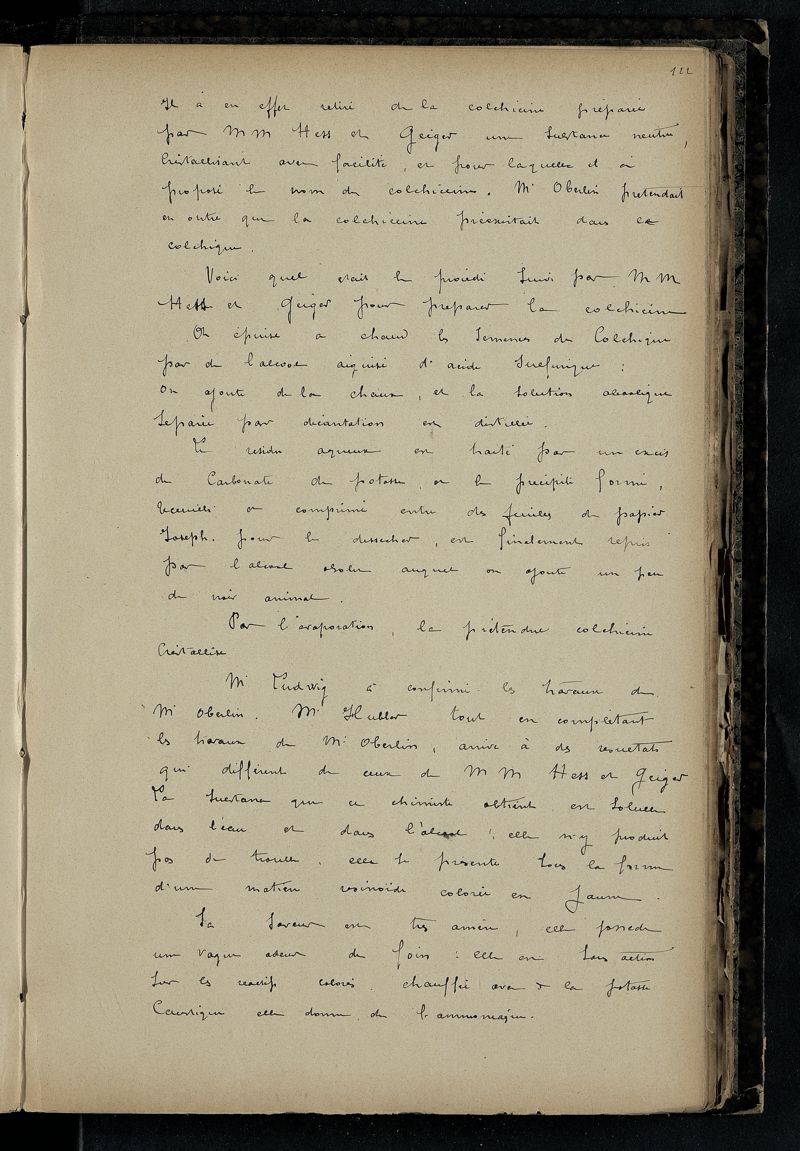 122
Il à en effet retiré de la colchicine préparée
par MM Hess et Geiger une substance neutre,
Cristallisant avec facilité, et pour laquelle il à
proposé le nom de colchiceine. Mr Oberlin prétendait
en outre que la colchiceine préexistait dans le
colchique.
Voici quel etait le procédé suivi par MM
Hess et Geiger pour preparer la colchicine
On épuise a chaud les Semences de Colchique
par de l'alcool aiguisé d'acide Sulfurique :
On ajoute de la chaux, et la solution alcoolique
Séparée par décantation est distillée.
Le residu aqueux est traité par un excès
de Carbonate de potasse, et le précipité formé,
recueilli et comprimé entre des feuilles de papier
Joseph. pour le dessecher, est finalement repris
par l'alcool absolu auquel on ajoute un peu
de noir animal.
Par l'evaporation, la prétendue colchicine
Cristallise
Mr Ludwig à confirmé les travaux de
Mr Oberlin. Mr Hubler tout en complètant
les travaux de Mr Oberlin, arrive à des resultats
qui diffèrent de ceux de MM Hess et Geiger
La Substance que ce chimiste obtient est Soluble
dans l'eau et dans l'alcool ; elle n'y produit
pas de trouble. elle se présente sous la forme
d'une matière resinoïde colorée en Jaune.
Sa Saveur est très amère, elle possede
une vague odeur de foin : elle est Sans action
Sur les reactifs colorés. chauffée avec de la potasse
Caustique elle donne de l'ammoniaque.